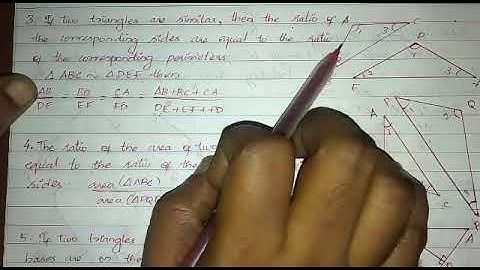 3. If two triangles are similar, then the ratio of
the corresponding sides are equal to the ratio
of the corresponding perimeters
Δ ABC ~ Δ DEF then
AB/DE = BC/EF = CA/FD = AB+BC+CA/DE+EF+FD
4. The ratio of the area of two
equal to the ratio of the
sides. area (ΔABC)
area (ΔPQR
5. If two triangles
bases are on the
A
C
D
E
A
P
Q
C
A